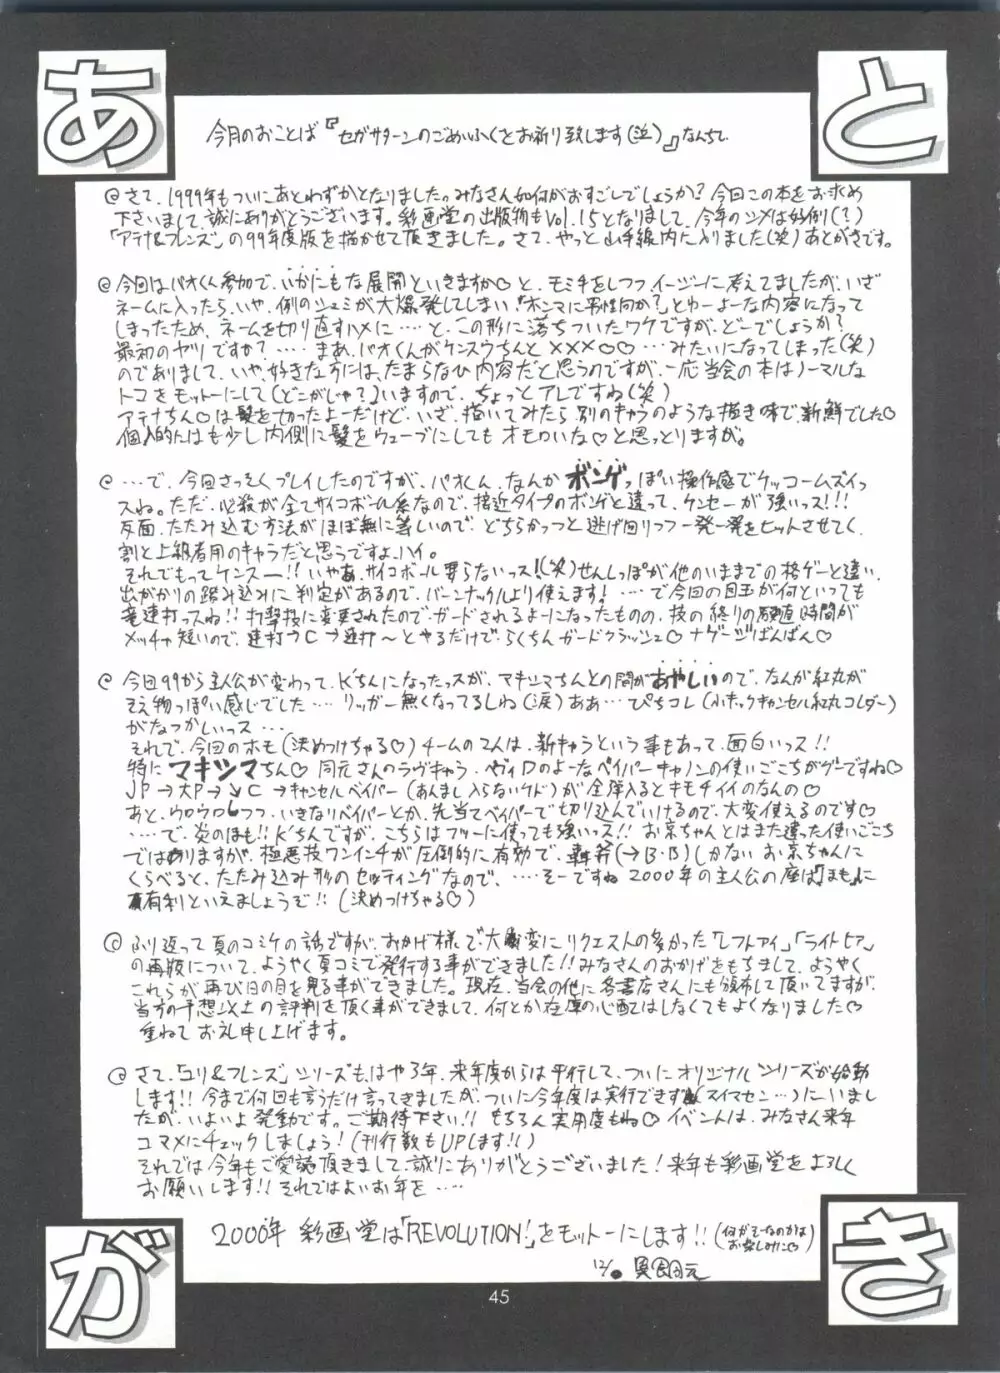 あ と
今月のおことば『セガサターンのごめいふくをお祈り致します(泣)』なんちて
@さて、1999年もついにあとわずかとなりました。みなさん如何がおすごしでしょうか? 今回この本をお求め
下さいまして、誠にありがとうございます。彩画堂の出版物もVol.15となりまして、今年のシメは好例(?)
「アテナ&フレンズ」の99年度版を描かせて頂きました。さて、やっと山手線内に入りました(笑)あとがきです。
@今回はパオくん参加で、いかにもな展開といきますか♡ と、モミ手をしつつイージーに考えてましたが、いざ
ネームに入ったら、いや、例のシュミが大爆発してしまい、「ホンマに男性向か?」とゆーよーな内容になって
しまったため、ネームを切り直すハメに‥‥と、この形に落ちついたワケですが、どーでしょうか?
最初のヤツですか? ‥‥まあ、パオくんがケンスウちんと×××♡♡ ‥‥みたいになってしまった(笑)
のでありまして、いや、好きな方には、たまらなひ内容だと思うのですが、一応当会の本はノーマルな
トコをモットーにして(どこがじゃ?)いますので、ちょっとアレですね(笑)
アテナちん♡は髪を切ったよーだけど、いざ、描いてみたら別のキャラのような描き味で、新鮮でした♡
個人的にはも少し内側に髪をウェーブにしてもオモロいな♡と思っとりますが。
@…で、今回さっそくプレイしたのですが、パオくん、なんかボンゲっぽい操作感でケッコームズイっ
スね。ただ、必殺が全てサイコボール系なので、接近タイプのボンゲと違って、ケンセーが強いっス!!!
反面、たたみ込む方法がほぼ無に等しいので、どちらかっつと逃げ回りつつ一発一発をヒットさせてく、
割と上級者用のキャラだと思うですよ、ハイ。
それでもってケンスー!! いやあ、サイコボール要らないっス!(笑)せんしっぽが他のいままでの格ゲーと違い、
出がかりの踏み込みに判定があるので、バーンナックルより使えます! ‥‥で今回の目玉が何といっても
竜連打っスね!! 打撃技に変更されたので、ガードされるよーになったものの、技の終りの硬直時間が
メッチャ短いので、連打→C→連打~とやるだけで、らくちんガードクラッシュ♡ナゲージばんばん♡
@今回99から主人公が変わって、K'ちんになったっスが、マキシマちんとの間があやしいので、なんか紅丸が
そえ物っぽい感じでした‥‥リッガー無くなってるしね(涙)ああ…ぴちコレ(小キックキャンセル紅丸コレダー)
がなつかしいっス‥‥
それで、今回のホモ(決めつけちゃる♡)チームの2人は、新キャラという事もあって、面白いっス!!
特にマキシマちん♡ 同元さんのラヴキャラ、ヘヴィDのよーなベイパーキャノンの使いごこちがグーですね♡
JP→大P→↘C→キャンセルベイパー(あんまし入らないケド)が全弾入るとキモチイイのなんの♡
あと、ウロウロしつつ、いきなりベイパーとか、先当てベイパーで切り込んでいけるので、大変使えるのです♡
‥‥で、炎のほも!! K'ちんですが、こちらはフツーに使っても強いっス!! お京ちゃんとはまた違った使いごこち
ではありますが、極悪技ワンインチが圧倒的に有効で、轟斧(→B・B)しかないお京ちゃんに
くらべると、たたみ込み形のセッティングなので、‥‥そーですね 2000年の主人公の座は「ほも」に
有利といえましょうぞ!! (決めつけちゃる♡)
@ふり返って夏のコミケの話ですが、おかげ様で、大変にリクエストの多かった「レフトアイ」「ライトヒア」
の再販について、ようやく夏コミで発行する事ができました!! みなさんのおかげをもちまして、ようやく
これらが再び日の目を見る事ができました。現在、当会の他に各書店さんにも頒布して頂いてますが、
当方の予想以上の評判を頂く事ができまして、何とか在庫の心配はしなくてもよくなりました♡
重ねてお礼申し上げます。
@さて、「ユリ&フレンズ」シリーズも、はや3年、来年度からは平行して、ついにオリジナルシリーズが始動
します!! 今まで何回も言うだけ言ってきましたが、ついに今年度は実行できず(スイマセン…)にいまし
たが、いよいよ発動です。ご期待下さい!! もちろん実用度もね♡ イベントは、みなさん来年
コマメにチェックしましょう! (刊行数もUPします!!)
それでは今年もご愛読頂きまして、誠にありがとうございました! 来年も彩画堂をよろしく
お願いします!! それではよいお年を‥‥
2000年 彩画堂は「REVOLUTION!」をモットーにします!! (何がそーなのかはお楽しみに♡)
12/●
が き
45